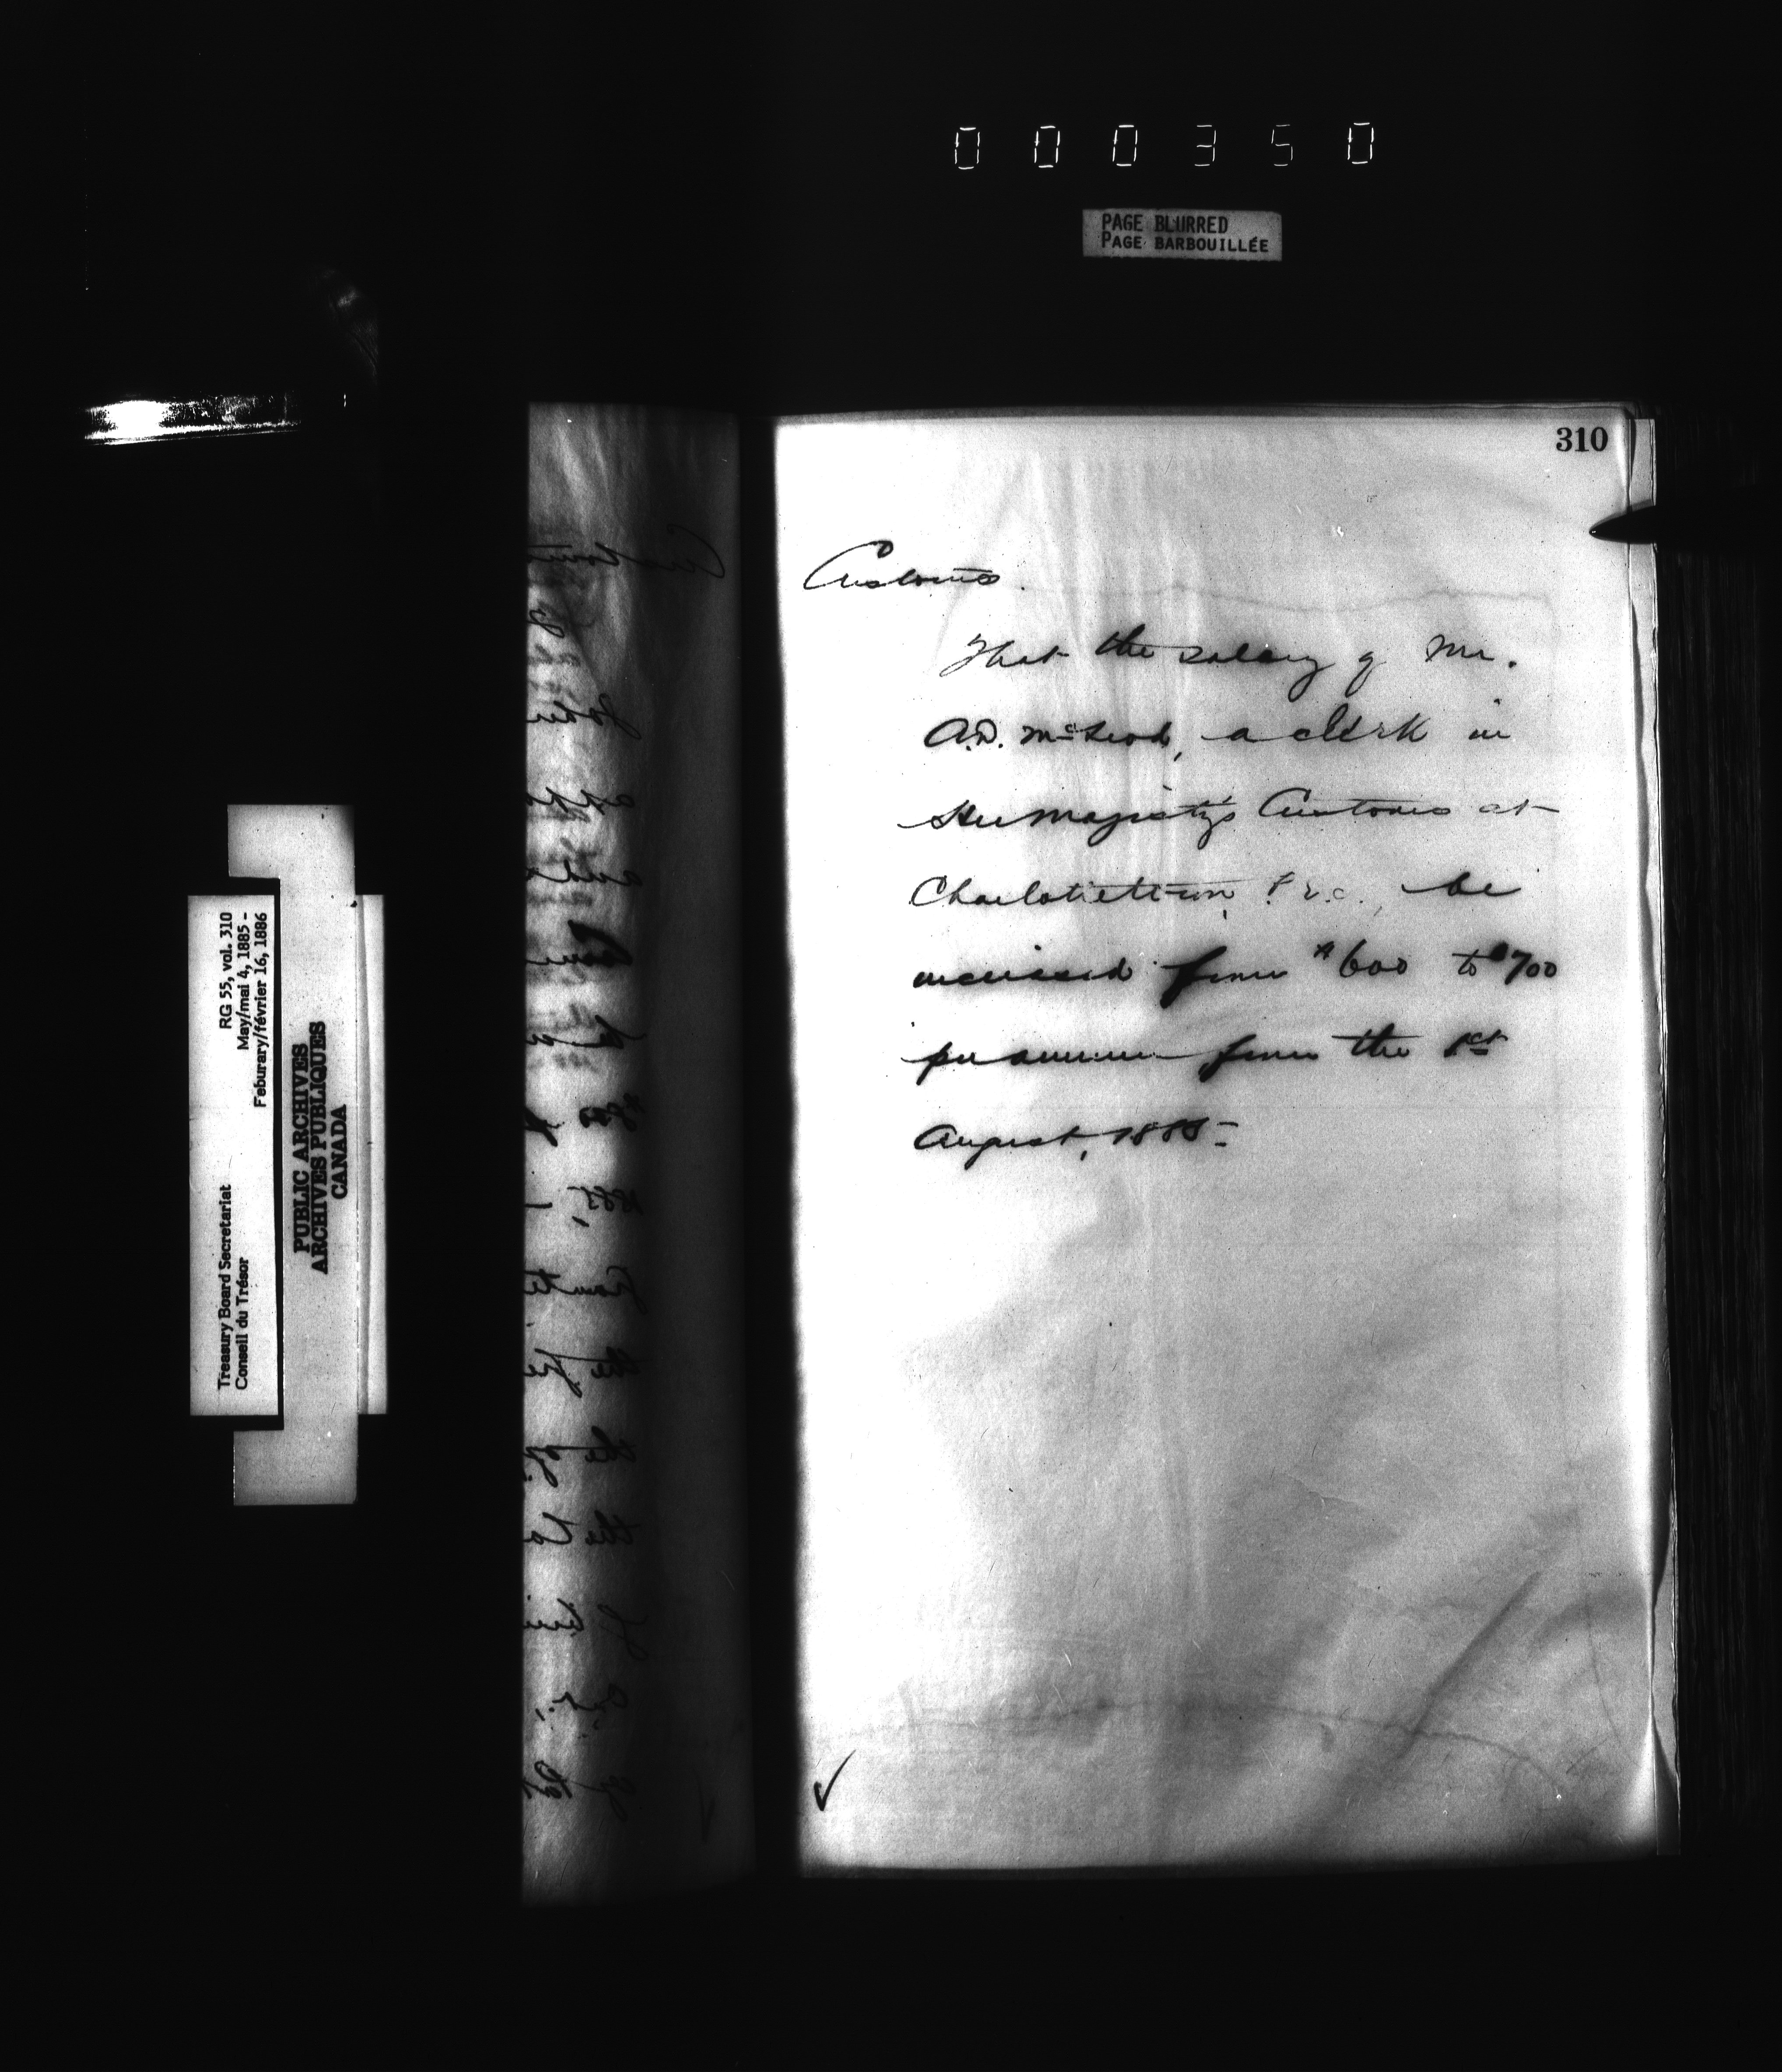 000350
PAGE BLURRED
PAGE BARBOUILLÉE
310
Customs.
That the salary of Mr.
A.D. McLeod, a clerk in
Her Majesty's Customs at
Charlottetown, P.E.I., be
increased from $600 to $700
per annum from the 1st
August, 1885-
RG 55, vol. 310
May/mai 4, 1885 -
Feburary/février 16, 1886
Treasury Board Secretariat
Conseil du Trésor
PUBLIC ARCHIVES
ARCHIVES PUBLIQUES
CANADA